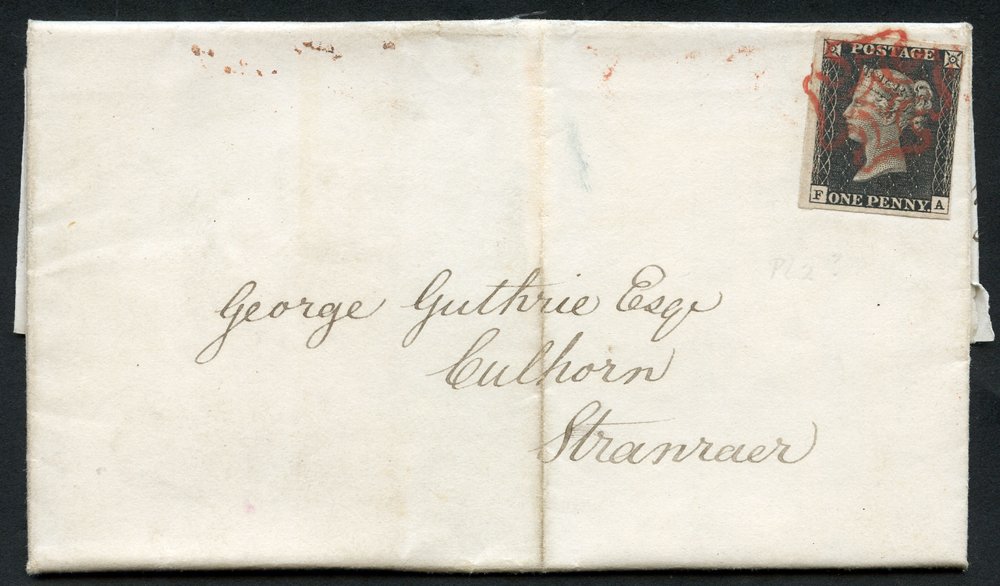 POSTAGE
F ONE PENNY. A
PL 2 ?
George Guthrie Esqr
Culhorn
Stranraer